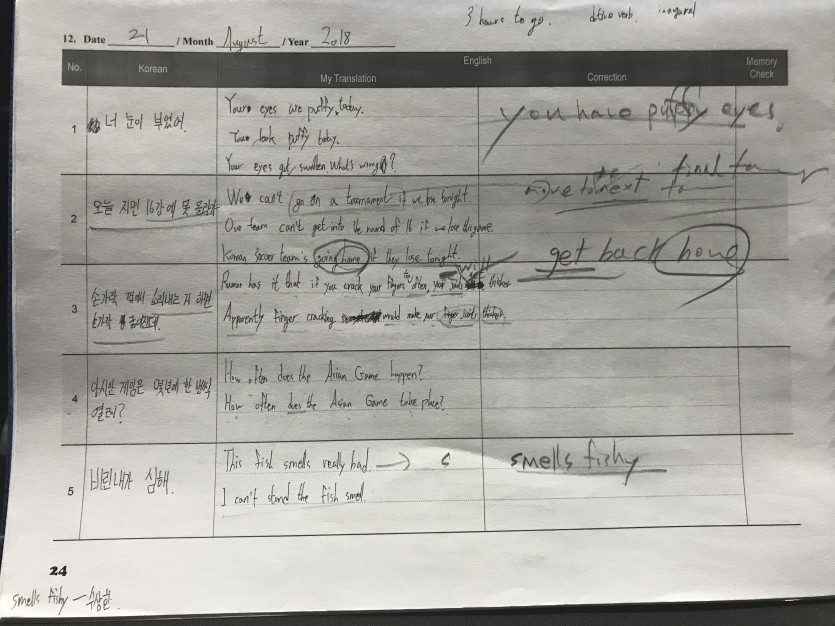 3 hours to go.
verb
12. Date 21 / Month August / Year 2018
No. Korean English Memory Check
My Translation Correction
1 너 눈이 부었어.
Your eyes are puffy today.
You look puffy today.
Your eyes get swollen what's wrong?
you have puffy eyes.
2 오늘 지면 16강에 못 올라가
We can't go on a tournament if we lose tonight.
Our team can't get into the round of 16 if we lose this game.
Korean soccer team's going home if they lose tonight.
to next final
get back home
3 손가락 꺾어서 소리내는 거 하면
손가락 굵어진대.
Rumor has it that if you crack your fingers often, your thicker
Apparently finger cracking would make your finger joints thicker
4 아시안 게임은 몇년에 한 번씩
열려?
How often does the Asian Game happen?
How often does the Asian Game take place?
5 비린내가 심해.
This fish smells really bad. →
I can't stand the fish smell.
smells fishy
24
smells fishy - 수상한